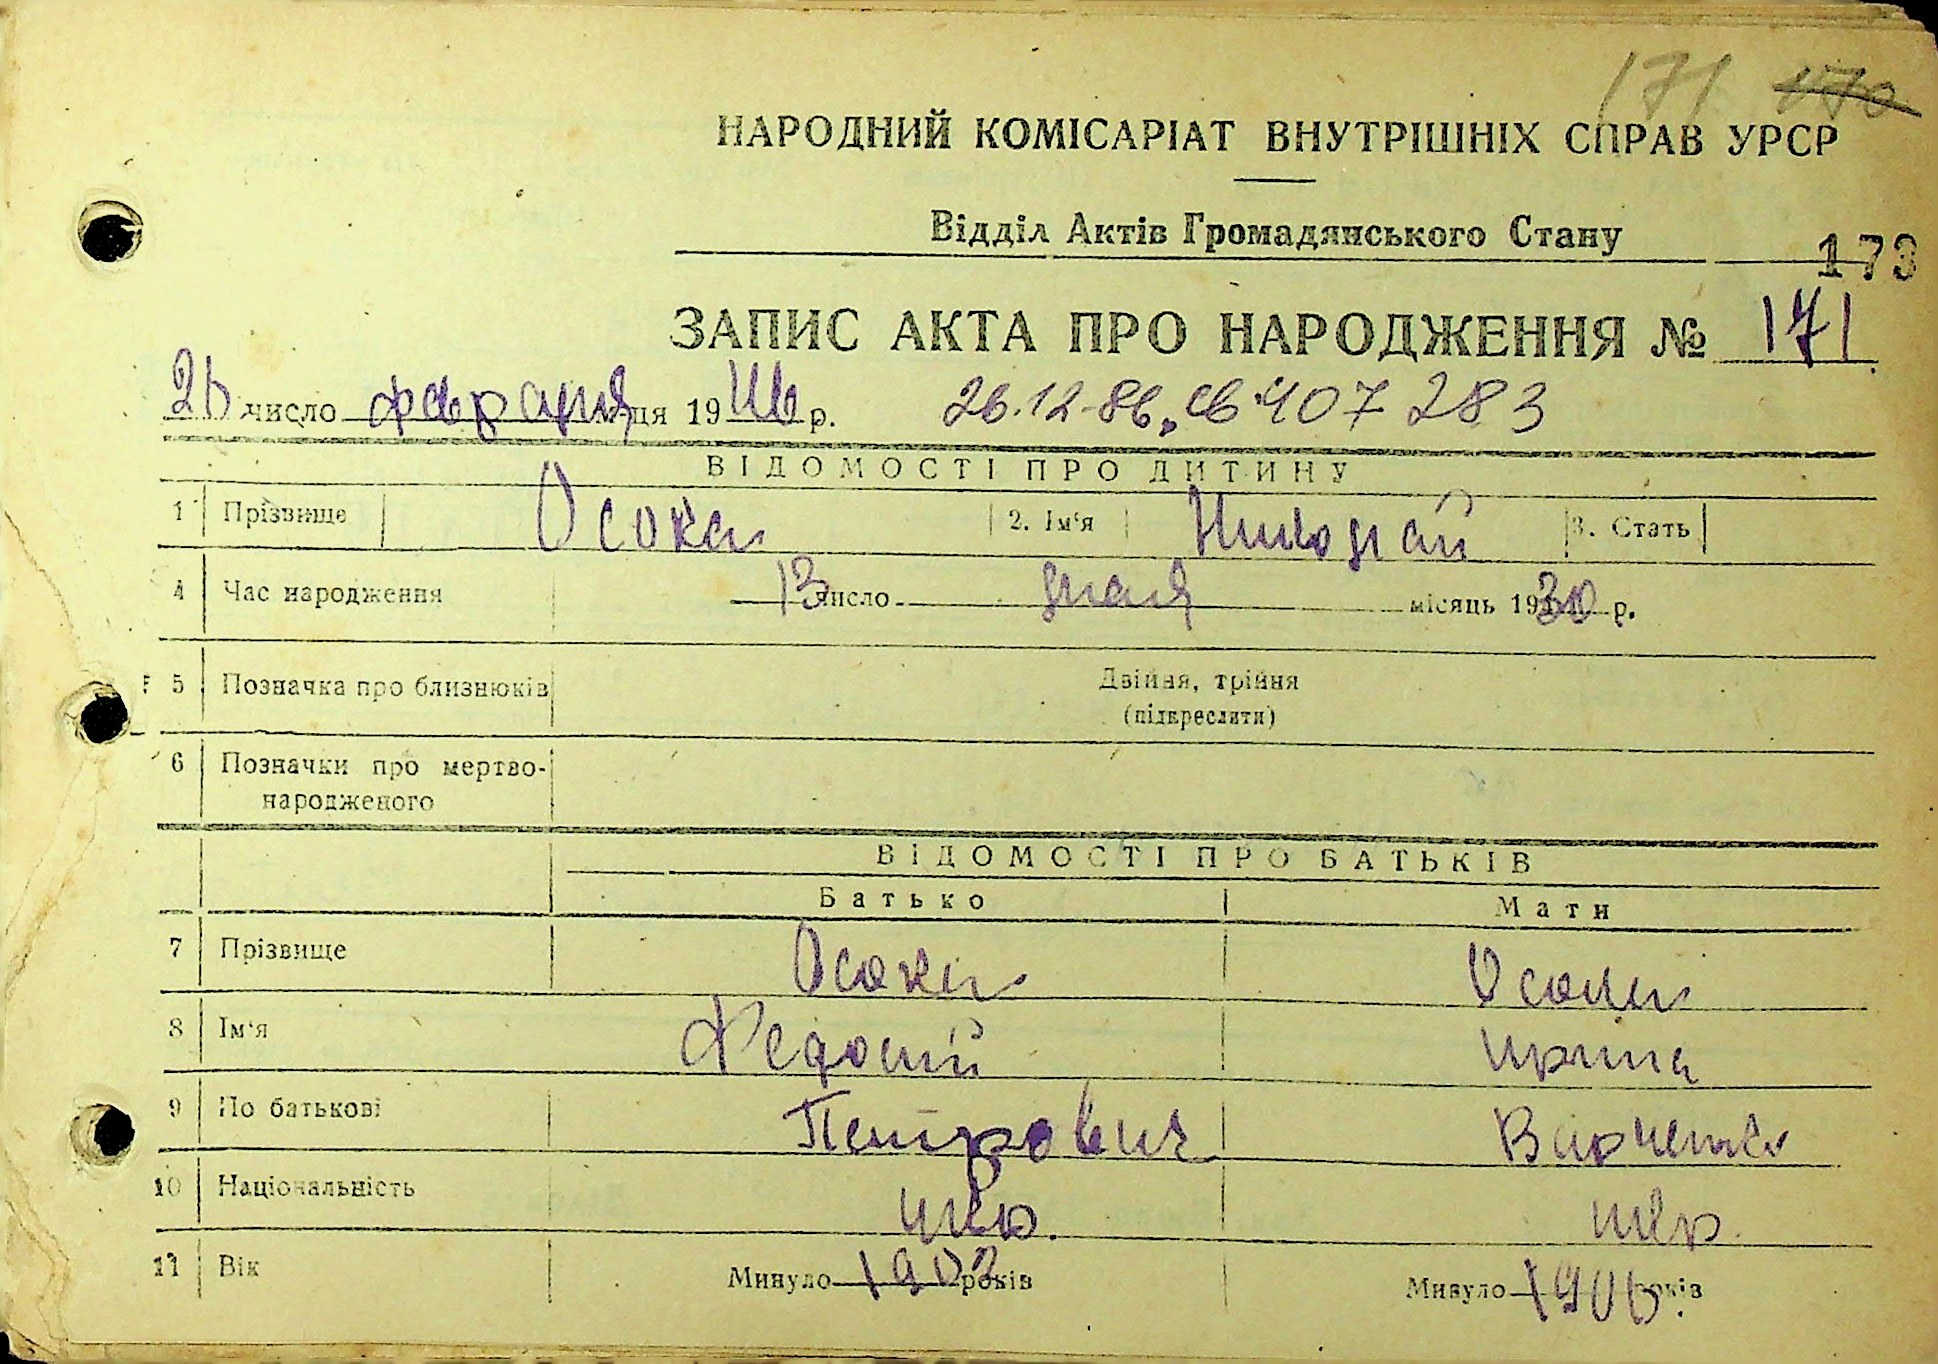 171 170
НАРОДНИЙ КОМІСАРІАТ ВНУТРІШНІХ СПРАВ УРСР
Відділ Актів Громадянського Стану
173
ЗАПИС АКТА ПРО НАРОДЖЕННЯ № 171
26 число февраля м-ця 1946 р. 26.12.86.
407283
ВІДОМОСТІ ПРО ДИТИНУ
1 Прізвище Осока 2. Ім'я Николай 3. Стать
4 Час народження 13 число мая місяць 1930 р.
5 Позначка про близнюків Двійня, трійня
(підкреслити)
6 Позначки про мертво-
народженого
ВІДОМОСТІ ПРО БАТЬКІВ
Батько Мати
7 Прізвище Осока Осока
8 Ім'я Федосий Ирина
9 По батькові Петрович
10 Національність укр. укр.
11 Вік Минуло 1902 років Минуло 1906. років